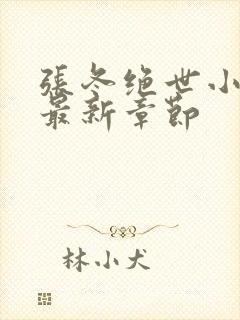 張冬绝世小
最新章節
林小犬